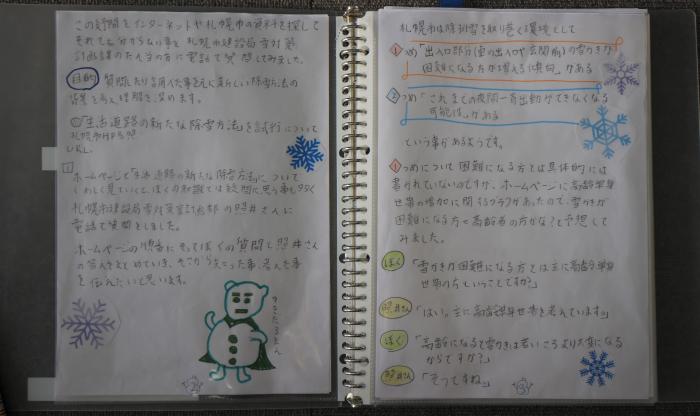 この疑問をインターネットや札幌市の資料を探して
それでも分からない事を札幌市建設局雪対策
計画課のたん当の方に電話で質問してみました。
目的 質問したり調べた事を元に新しい除雪方法の
背景を考え理解を深めます。
「生活道路の新たな除雪方法」を試行について
札幌市HP参照
URL
1
ホームページで「生活道路の新たな除雪方法」について
くわしく見ていくと、ぼくの知識では疑問に思う事も多く
札幌市建設局雪対策室計画部の照井さんに
電話で質問をしました。
ホームページの順番にそってぼくの質問と照井さん
の答えをまとめていき、そこから気になった事、考えた事
を伝えたいと思います。
ゆきだるまん
2
札幌市は除排雪を取り巻く環境として
1つめ「出入口部分(車の出入口や玄関前)の雪かきが
困難になる方が増える傾向」がある
2つめ「これまでの夜間一斉出動ができなくなる
可能性」がある
という事があるようです。
1つめについて困難になる方とは具体的には
書かれていないのですが、ホームページに高齢単身
世帯の増加に関するグラフがあったので、雪かきが
困難になる方=高齢者の方かな?と予想して
みました。
ぼく 「雪かきが困難になる方とは主に高齢単身
世帯の方ということですか?」
照井さん 「はい。主に高齢単身世帯を考えています。」
ぼく 「高齢になると雪かきは若いころより大変になる
からですか?」
照井さん 「そうですね」
3